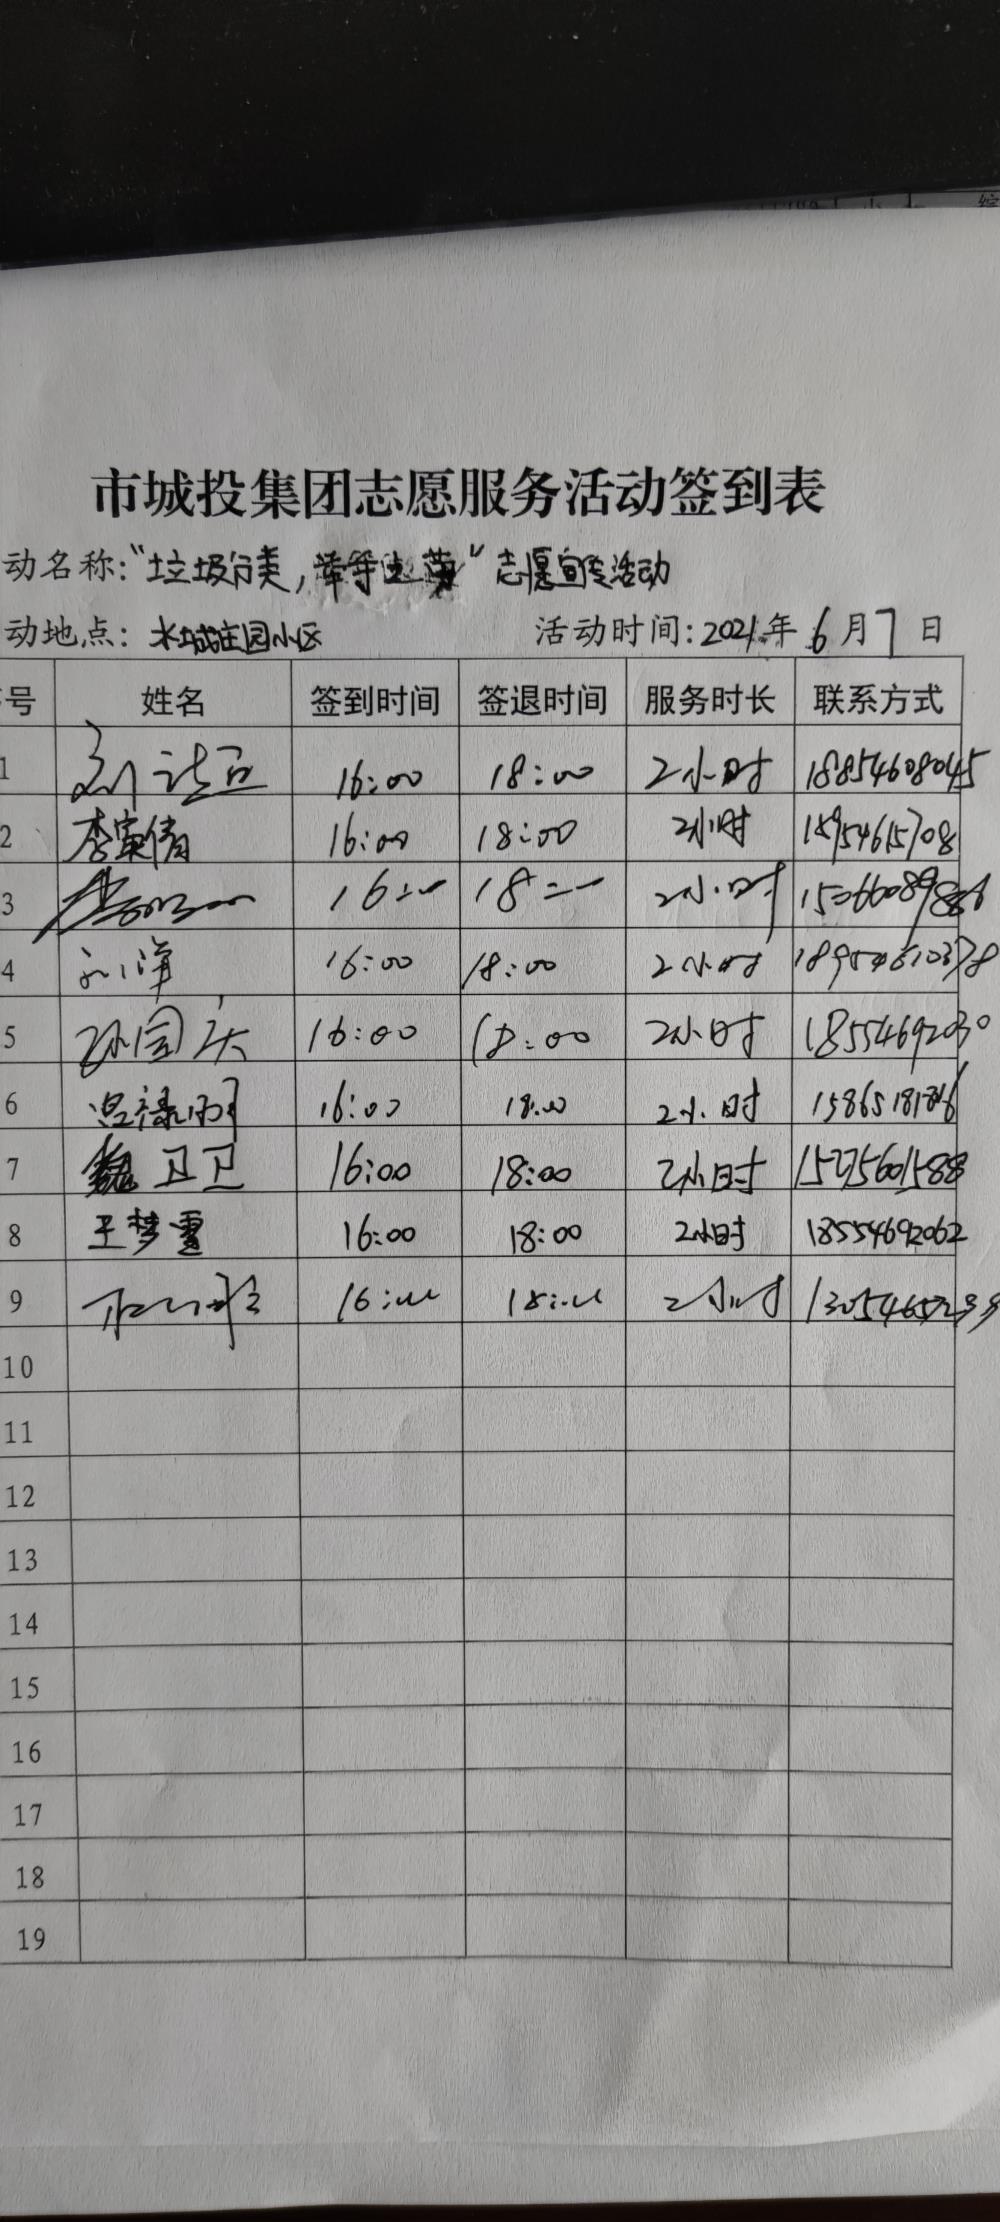 市城投集团志愿服务活动签到表
动名称:“垃圾分类,举手之劳”志愿宣传活动
动地点:水城庄园小区 活动时间:2021年6月7日
号 姓名 签到时间 签退时间 服务时长 联系方式
1 16:00 18:00 2小时 18854608045
2 李寅倩 16:00 18:00 2小时 18954615708
3 16:00 18:00 2小时 15066089886
4 刘洋 16:00 18:00 2小时 18954610378
5 孙国庆 16:00 18:00 2小时 18554692030
6 16:00 18:00 2小时
7 魏卫卫 16:00 18:00 2小时 15275601588
8 王梦雪 16:00 18:00 2小时 18554692062
9 16:00 18:00 2小时
10
11
12
13
14
15
16
17
18
19